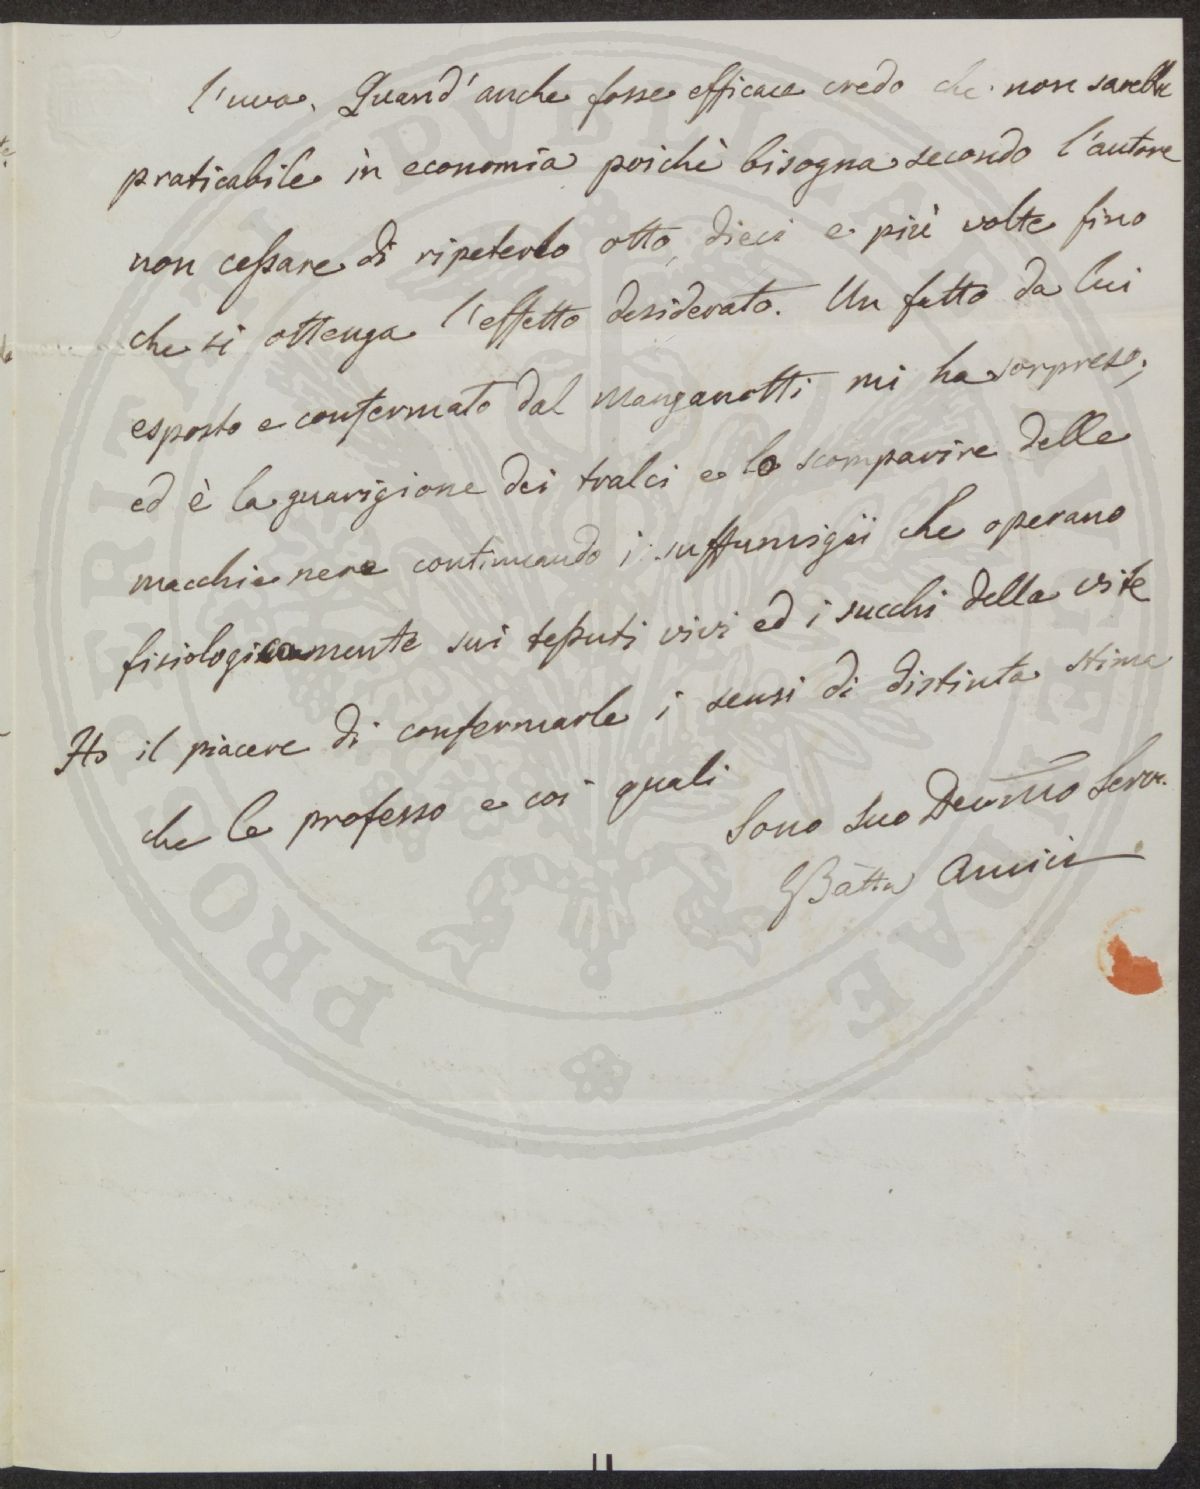 l'uva. Quand'anche fosse efficace credo che non sarebbe
praticabile in economia poichè bisogna secondo l'autore
non cessare di ripeterlo otto, dieci e più volte fino
che si ottenga l'effetto desiderato. Un fatto da lui
esposto e confermato dal Manganotti mi ha sorpreso;
ed è la guarigione dei tralci e lo scomparire delle
macchie nere continuando i suffumigii che operano
fisiologicamente sui tessuti vivi ed i succhi della vite
Ho il piacere di confermarle i sensi di distinta stima
che le professo e coi quali
Sono suo Devmo Serv.
GBatta Amici
PROPRIETÀ PUBLICAE